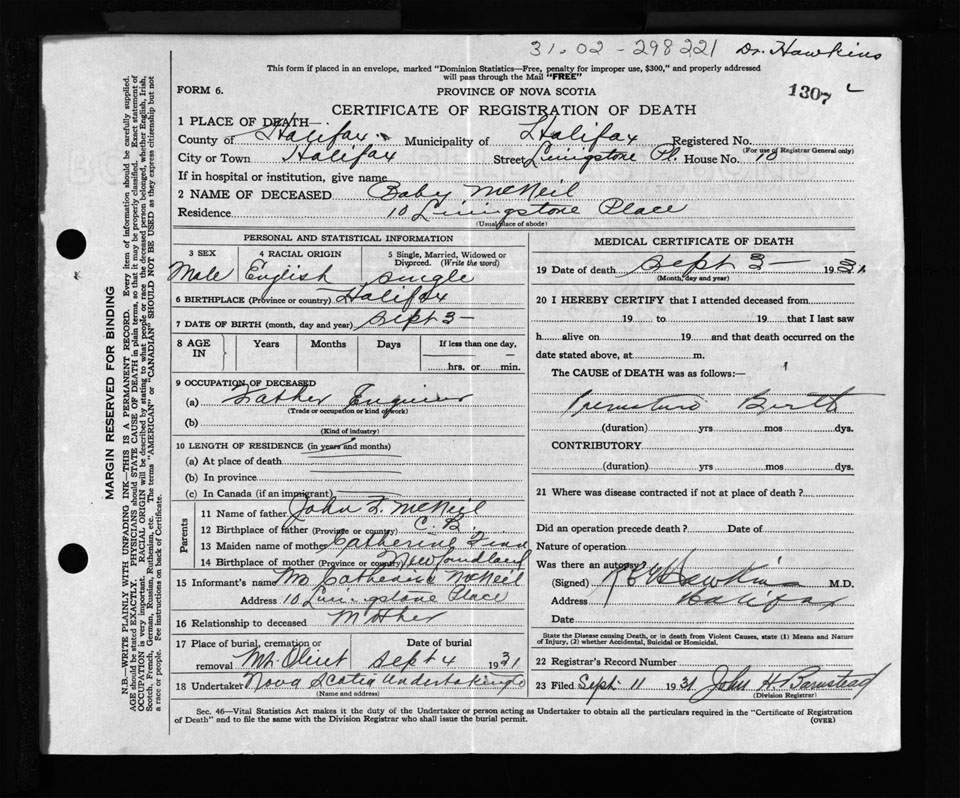 31.02-298221 Dr. Hawkins
This form if placed in an envelope, marked "Dominion Statistics—Free, penalty for improper use, $300," and properly addressed
will pass through the Mail "FREE"
1307
FORM 6. PROVINCE OF NOVA SCOTIA
CERTIFICATE OF REGISTRATION OF DEATH
1 PLACE OF DEATH—
County of Halifax Municipality of Halifax Registered No.
(For use of Registrar General only)
City or Town Halifax Street Livingstone Pl. House No. 10
If in hospital or institution, give name
2 NAME OF DECEASED Baby McNeil
Residence 10 Livingstone Place
(Usual place of abode)
PERSONAL AND STATISTICAL INFORMATION
3 SEX 4 RACIAL ORIGIN 5 Single, Married, Widowed or
Divorced. (Write the word)
Male English Single
6 BIRTHPLACE (Province or country) Halifax
7 DATE OF BIRTH (month, day and year) Sept 3—
8 AGE IN Years Months Days If less than one day,
hrs. or min.
9 OCCUPATION OF DECEASED
(a) Father Engineer
(Trade or occupation or kind of work)
(b)
(Kind of industry)
10 LENGTH OF RESIDENCE (in years and months)
(a) At place of death
(b) In province
(c) In Canada (if an immigrant)
Parents
11 Name of father John McNeil
12 Birthplace of father (Province or country) C. B.
13 Maiden name of mother Catherine
14 Birthplace of mother (Province or country) Newfoundland
15 Informant's name Mrs Catherine McNeil
Address 10 Livingstone Place
16 Relationship to deceased Mother
17 Place of burial, cremation or Date of burial
removal Mt. Olivet Sept 4 1931
18 Undertaker Nova Scotia Undertaking Co
(Name and address)
MEDICAL CERTIFICATE OF DEATH
19 Date of death Sept 3— 1931
(Month, day and year)
20 I HEREBY CERTIFY that I attended deceased from
19 to 19 that I last saw
h alive on 19 and that death occurred on the
date stated above, at m.
The CAUSE of DEATH was as follows:—
Premature Birth
(duration) yrs mos dys.
CONTRIBUTORY
(duration) yrs mos dys.
21 Where was disease contracted if not at place of death?
Did an operation precede death? Date of
Nature of operation
Was there an autopsy
(Signed) Hawkins M.D.
Address Halifax
Date
State the Disease causing Death, or in death from Violent Causes, state (1) Means and Nature
of Injury, (2) whether Accidental, Suicidal or Homicidal.
22 Registrar's Record Number
23 Filed Sept 11 1931 John H. Barnstead
(Division Registrar)
Sec. 46—Vital Statistics Act makes it the duty of the Undertaker or person acting as Undertaker to obtain all the particulars required in the "Certificate of Registration
of Death" and to file the same with the Division Registrar who shall issue the burial permit. (OVER)
MARGIN RESERVED FOR BINDING
N.B.—WRITE PLAINLY WITH UNFADING INK—THIS IS A PERMANENT RECORD. Every item of information should be carefully supplied.
AGE should be stated EXACTLY. PHYSICIANS should STATE CAUSE OF DEATH in plain terms, so that it may be properly classified. Exact statement of
OCCUPATION is very important. RACIAL ORIGIN will be described by stating to what people or race the deceased person belonged, whether English, Irish,
Scotch, French, German, Russian, Ruthenian, etc. The terms "AMERICAN" or "CANADIAN" SHOULD NOT BE USED as they express citizenship but not
a race or people. See instructions on back of Certificate.